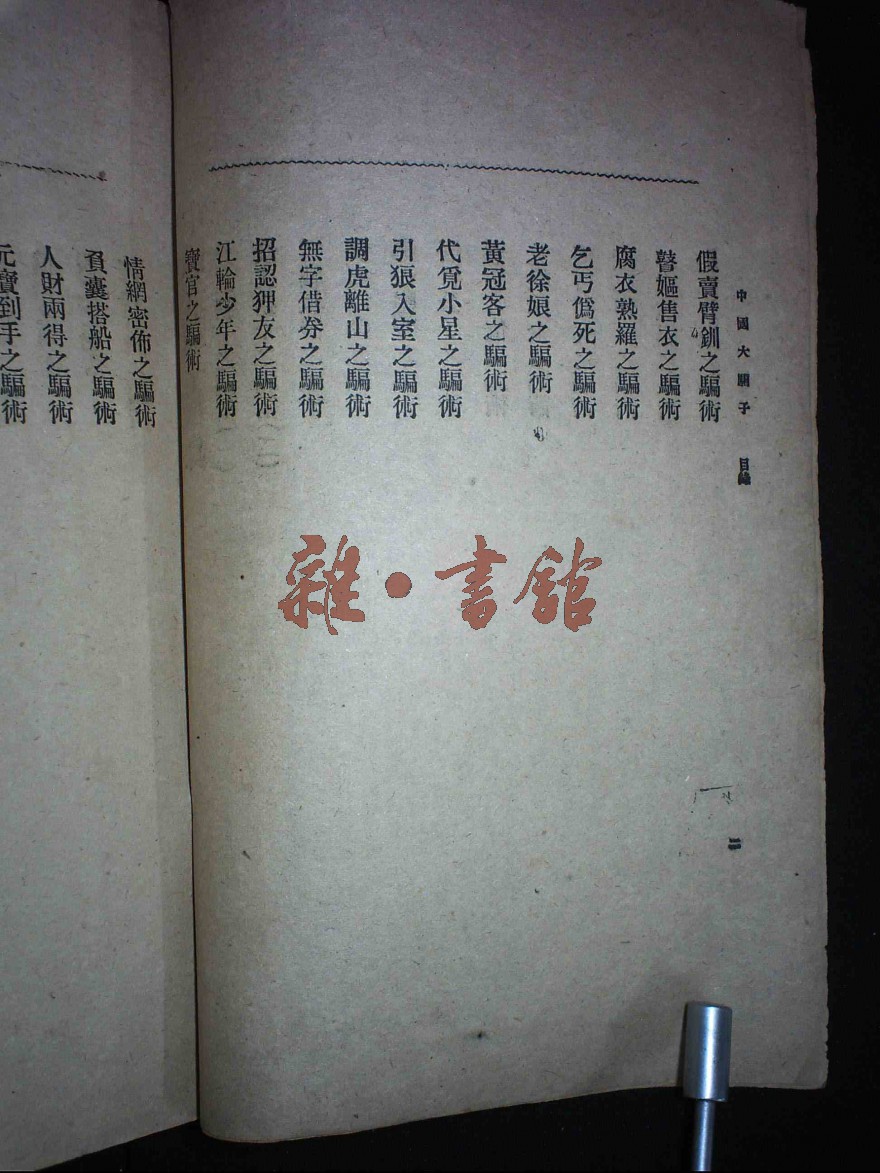 中國大騙子 目錄
二
假賣臂釧之騙術
瞽嫗售衣之騙術
腐衣熟羅之騙術
乞丐僞死之騙術
老徐娘之騙術
黃冠客之騙術
代覓小星之騙術
引狼入室之騙術
調虎離山之騙術
無字借券之騙術
招認狎友之騙術
江輪少年之騙術
寶官之騙術
情網密佈之騙術
負囊搭船之騙術
人財兩得之騙術
元寶到手之騙術
雜·書館